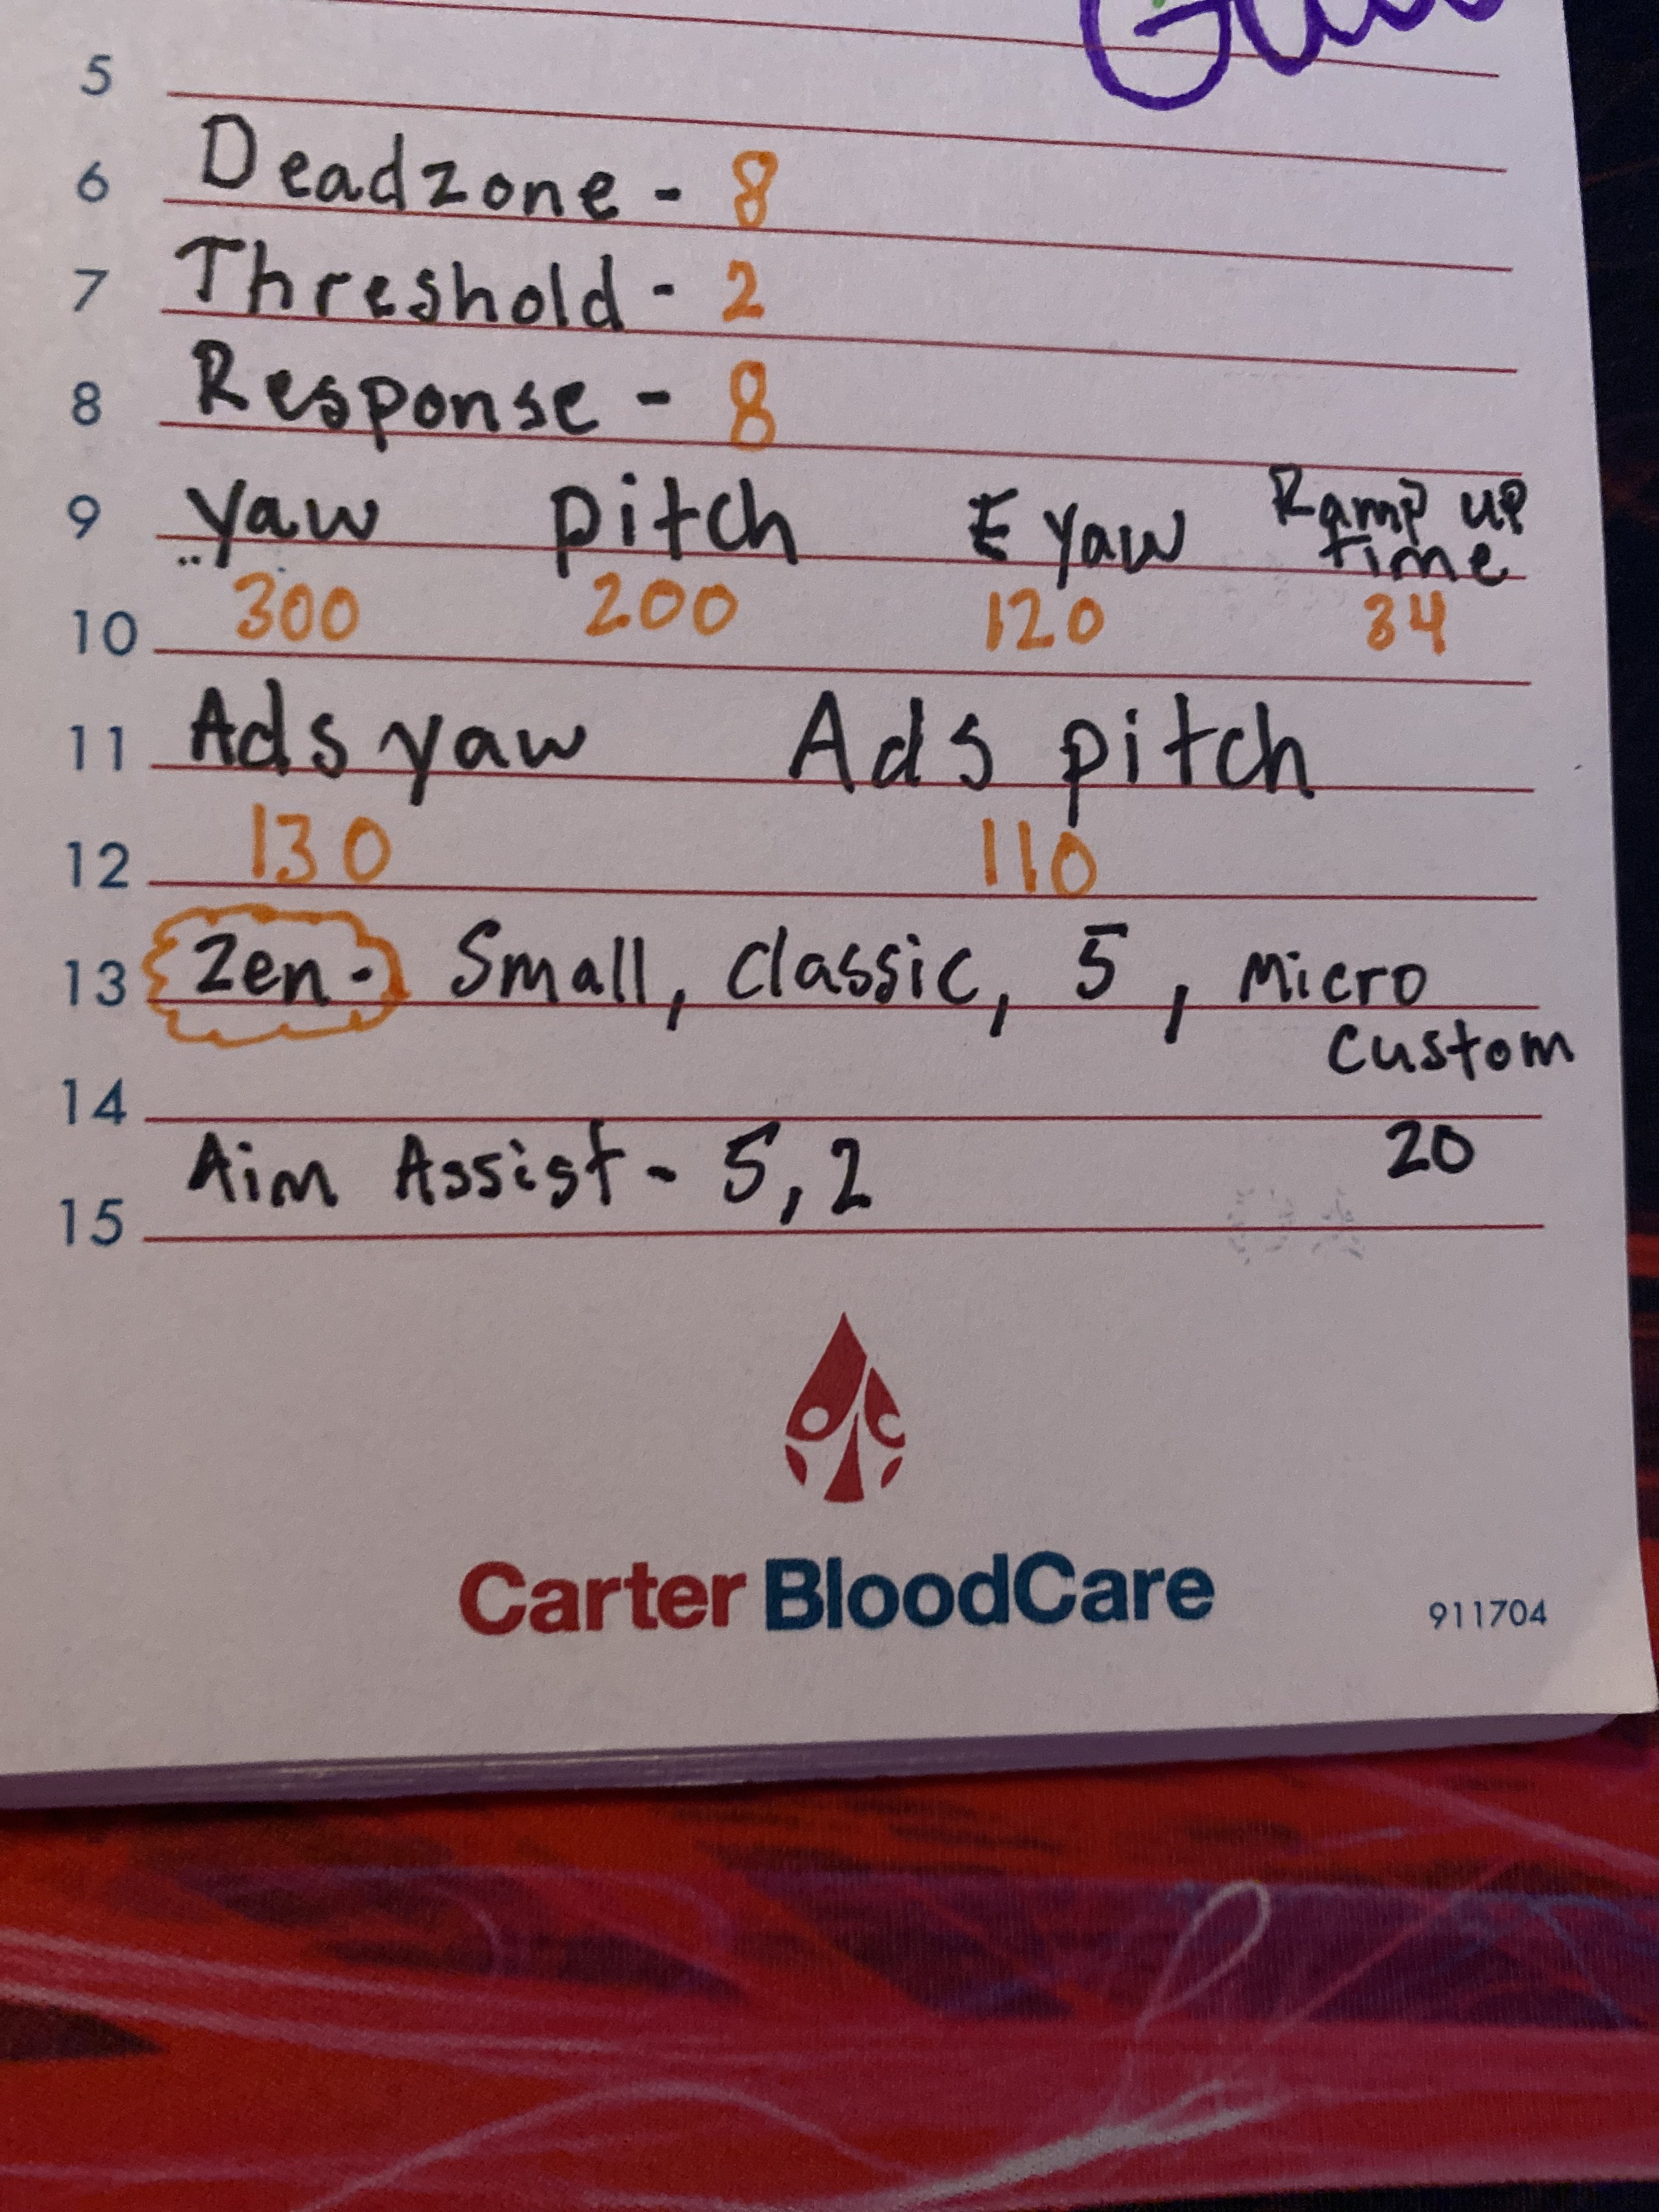 5
6 Deadzone - 8
7 Threshold - 2
8 Response - 8
9 yaw pitch E yaw Ramp up time
10 300 200 120 34
11 Ads yaw Ads pitch
12 130 110
13 Zen - Small, classic, 5, Micro
custom
14
15 Aim Assist - 5,2 20
Carter BloodCare
911704